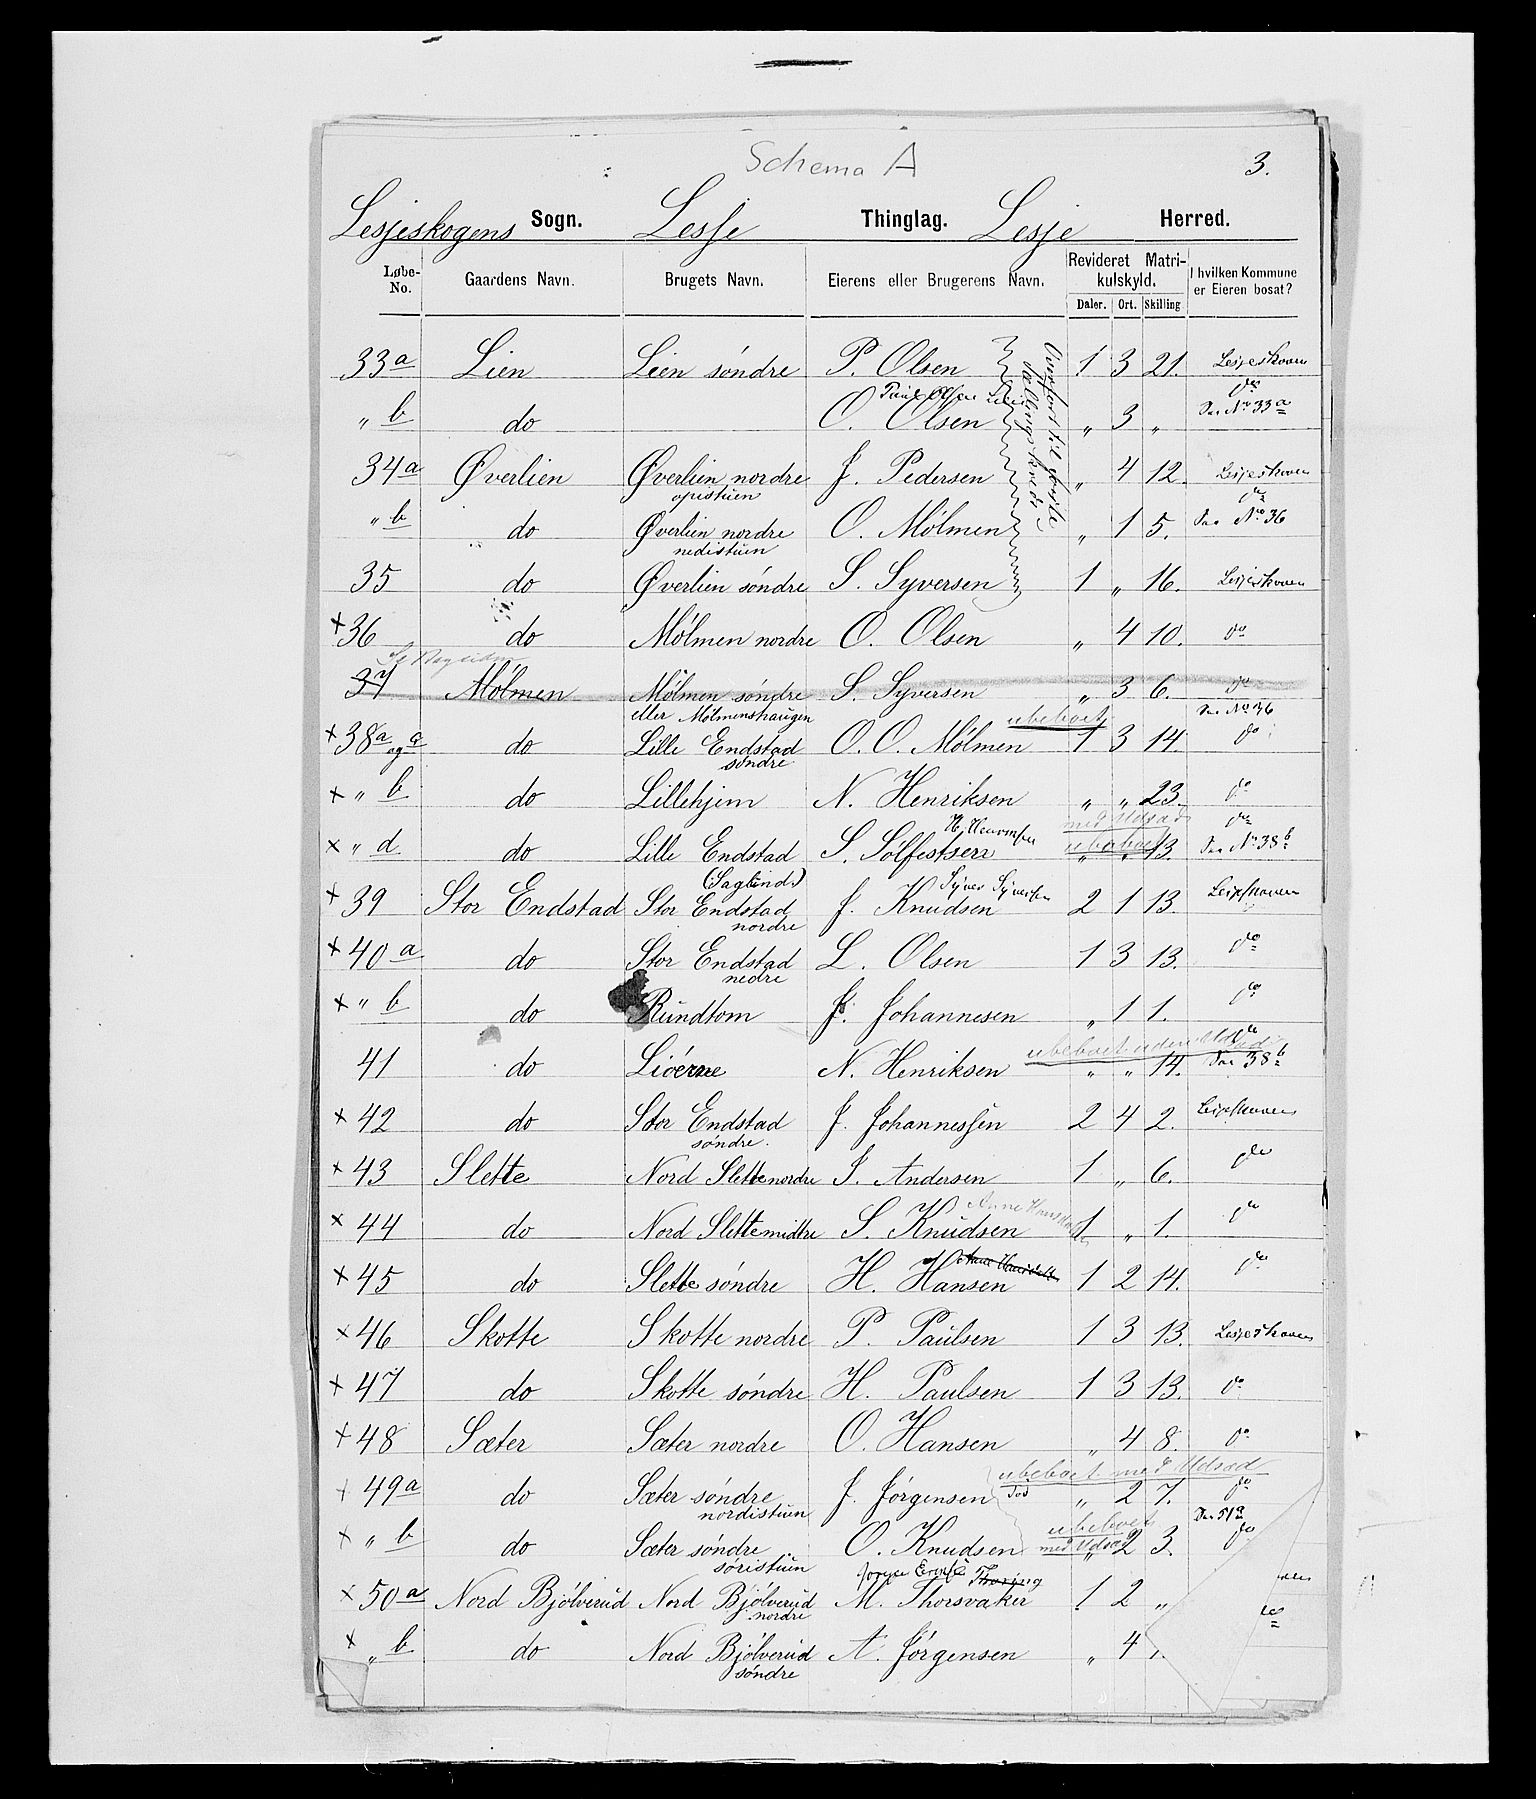 Schema A
3.
Lesjeskogens Sogn. Lesje Thinglag. Lesje Herred.
Løbe-No. Gaardens Navn. Brugets Navn. Eierens eller Brugerens Navn. Revideret Matrikulskyld. Daler. Ort. Skilling I hvilken Kommune er Eieren bosat?
33a Lien Lien söndre P. Olsen 1 3 21. Lesjeskoven
do
Paul Olsen Lien
" b do O. Olsen " 3 " Se No 33a
34a Øverlien Øverlien nordre J. Pedersen " 4 12. Lesjeskoven
opistuen
do
" b do Øverlien nordre O. Mölmen " 1 5. No 36
nedistuen
Overfört til förste
35 do Øverlien söndre S. Syversen 1 " 16. Lesjeskoven
x 36 do Mölmen nordre O. Olsen " 4 10. do
37 Mölmen Mölmen söndre S. Syversen " 3 6. do
eller Mölmenshaugen
ubeboet No 36
x 38a og c do Lille Endstad O. O. Mölmen 1 3 14. do
söndre
x " b do Lillehjem N. Henriksen " " 23. do
med Udsæd do
x " d do Lille Endstad S. Solfestsen ubeboet " " 13. No 38b
(Saglund)
Syver Syversen
x 39 Stor Endstad Stor Endstad J. Knudsen 2 1 13. Lesjeskoven
nordre
x 40a do Stor Endstad L. Olsen 1 3 13. do
nedre
x " b do Rundtom J. Johannesen " 1 1. do
ubeboet uden Udsæd
41 do Liöerne N. Henriksen " " 14. 38b
x 42 do Stor Endstad J. Johannessen 2 4 2. Lesjeskoven
söndre.
x 43 Slette Nord Slette nordre J. Andersen 1 " 6. do
Anne
x 44 do Nord Slette midtre S. Knudsen 1 " 1. do
x 45 do Slette söndre H. Hansen 1 2 14. do
x 46 Skotte Skotte nordre P. Paulsen 1 3 13. Lesjeskoven
x 47 do Skotte söndre H. Paulsen 1 3 13. do
x 48 Sæter Sæter nordre O. Hansen " 4 8. do
ubeboet med Udsæd
x 49a do Sæter söndre J. Jörgensen " 2 7. do
nordistuen
ubeboet 51a
x " b do Sæter söndre O. Knudsen med Udsæd " 2 3. do
söristuen
x 50a Nord Bjölverud Nord Bjölverud M. Thorsvaker 1 2 "
nordre
x " b do Nord Bjölverud A. Jörgensen " 4 do
söndre